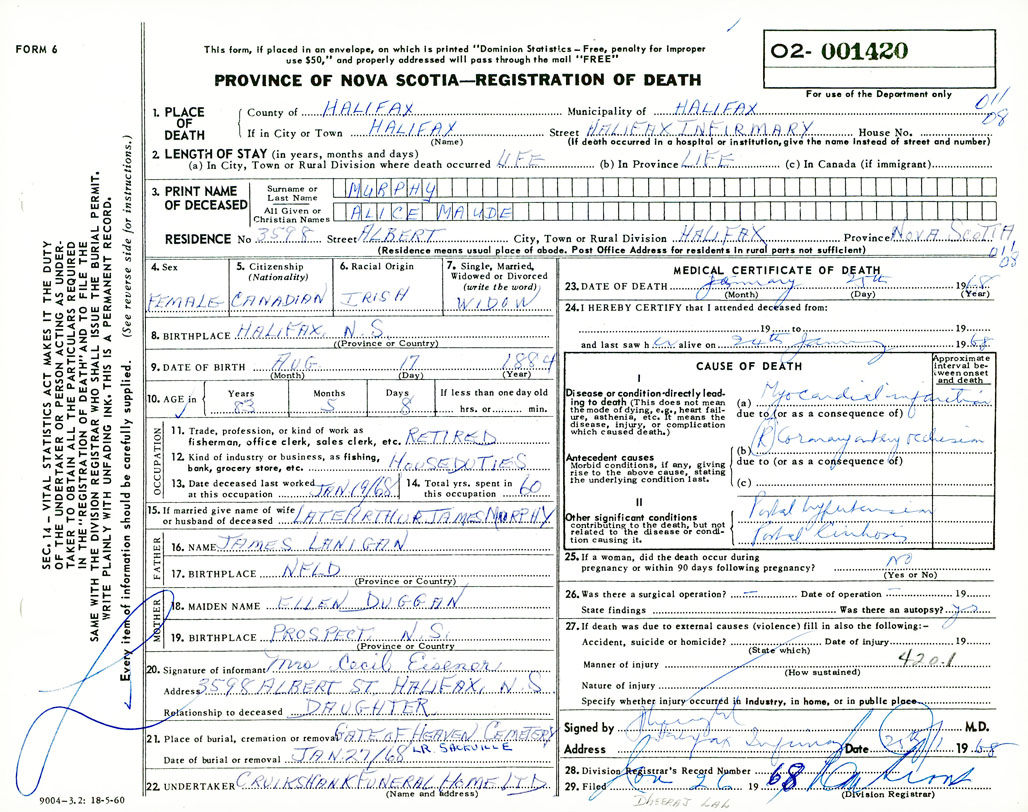 FORM 6
This form, if placed in an envelope, on which is printed "Dominion Statistics – Free, penalty for improper
use $50," and properly addressed will pass through the mail "FREE"
PROVINCE OF NOVA SCOTIA—REGISTRATION OF DEATH
O2- 001420
For use of the Department only
011
08
SEC. 14 – VITAL STATISTICS ACT MAKES IT THE DUTY
OF THE UNDERTAKER OR PERSON ACTING AS UNDER-
TAKER TO OBTAIN ALL THE PARTICULARS REQUIRED
IN THE "REGISTRATION OF DEATH" AND TO FILE THE
SAME WITH THE DIVISION REGISTRAR WHO SHALL ISSUE THE BURIAL PERMIT.
WRITE PLAINLY WITH UNFADING INK. THIS IS A PERMANENT RECORD.
Every item of information should be carefully supplied. (See reverse side for instructions.)
1. PLACE OF DEATH
County of HALIFAX Municipality of HALIFAX
If in City or Town HALIFAX Street HALIFAX INFIRMARY House No.
(Name) (If death occurred in a hospital or institution, give the name instead of street and number)
2. LENGTH OF STAY (in years, months and days)
(a) In City, Town or Rural Division where death occurred LIFE (b) In Province LIFE (c) In Canada (if immigrant)
3. PRINT NAME OF DECEASED
Surname or Last Name MURPHY
All Given or Christian Names ALICE MAUDE
RESIDENCE No 3598 Street ALBERT City, Town or Rural Division HALIFAX Province NOVA SCOTIA
(Residence means usual place of abode. Post Office Address for residents in rural parts not sufficient)
011
08
4. Sex FEMALE
5. Citizenship (Nationality) CANADIAN
6. Racial Origin IRISH
7. Single, Married, Widowed or Divorced (write the word) WIDOW
8. BIRTHPLACE HALIFAX, N.S.
(Province or Country)
9. DATE OF BIRTH AUG 17 1884
(Month) (Day) (Year)
10. AGE in Years 83 Months 5 Days 8 If less than one day old hrs. or min.
OCCUPATION
11. Trade, profession, or kind of work as
fisherman, office clerk, sales clerk, etc. RETIRED
12. Kind of industry or business, as fishing,
bank, grocery store, etc. HOUSEDUTIES
13. Date deceased last worked at this occupation JAN 19/68
14. Total yrs. spent in this occupation 60
15. If married give name of wife
or husband of deceased LATE ARTHUR JAMES MURPHY
FATHER
16. NAME JAMES LANIGAN
17. BIRTHPLACE NFLD
(Province or Country)
MOTHER
18. MAIDEN NAME ELLEN DUGGAN
19. BIRTHPLACE PROSPECT, N.S.
(Province or Country
20. Signature of informant Mrs Cecil Eisenor
Address 3598 ALBERT ST. HALIFAX, N.S
Relationship to deceased DAUGHTER
21. Place of burial, cremation or removal GATE OF HEAVEN CEMETERY
Date of burial or removal JAN 27/68 LR. SACKVILLE
22. UNDERTAKER CRUIKSHANK FUNERAL HOME LTD
(Name and address)
9004–3.2: 18-5-60
MEDICAL CERTIFICATE OF DEATH
23. DATE OF DEATH January 25th 1968
(Month) (Day) (Year)
24. I HEREBY CERTIFY that I attended deceased from:
19 to 19
and last saw her alive on 24th January 1968
CAUSE OF DEATH
Approximate interval between onset and death
I
Disease or condition directly leading to death (This does not mean the mode of dying, e.g., heart failure, asthenia, etc. It means the disease, injury, or complication which caused death.)
(a) Myocardial infarction
due to (or as a consequence of)
(b) (R) Coronary artery occlusion
Antecedent causes
Morbid conditions, if any, giving rise to the above cause, stating the underlying condition last.
due to (or as a consequence of)
(c)
II
Other significant conditions
contributing to the death, but not related to the disease or condition causing it.
Portal hypertension
Portal Cirrhosis
25. If a woman, did the death occur during
pregnancy or within 90 days following pregnancy? NO
(Yes or No)
26. Was there a surgical operation? – Date of operation – 19
State findings Was there an autopsy? yes
27. If death was due to external causes (violence) fill in also the following:–
Accident, suicide or homicide? Date of injury 19
(State which)
Manner of injury 420.1
(How sustained)
Nature of injury
Specify whether injury occurred in Industry, in home, or in public place
Signed by M.D.
Address Halifax Infirmary Date 25th 1968
28. Division Registrar's Record Number
29. Filed Jan 26 1968
(Division Registrar)
DHEERAJ LAL